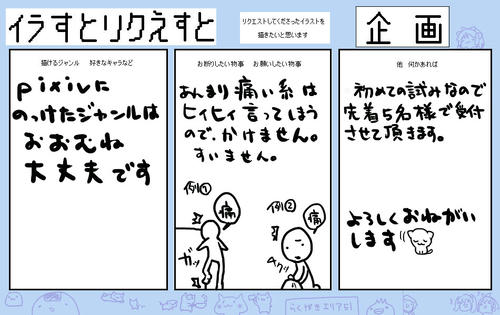 イラすとリクえすと
リクエストしてくださったイラストを
描きたいと思います
企画
描けるジャンル 好きなキャラなど
pixivに
のっけたジャンルは
おおむね
大丈夫です
お断りしたい物事 お願いしたい物事
あんまり痛い系は
ヒィヒィ言ってしまう
ので、かけません。
すいません。
例①
痛
ガッ
例②
痛
他 何かあれば
初めての試みなので
先着5名様で受付
させて頂きます。
よろしくおねがい
します
らくがきエリアSI